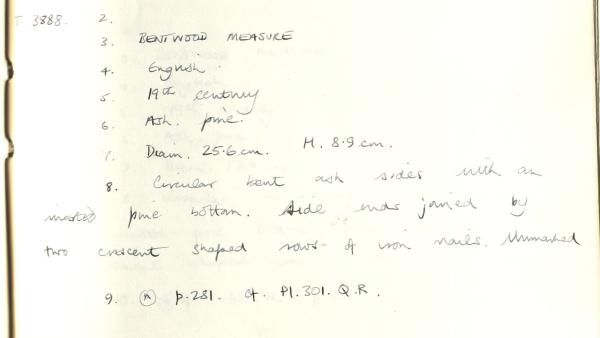 T 3888. 2.
3. BENTWOOD MEASURE
4. English.
5. 19th century
6. Ash. pine.
7. Diam. 25.6.cm. H. 8.9.cm.
8. Circular bent ash sides with an
inserted pine bottom. Side ends joined by
two crescent shaped rows of iron nails. Unmarked
9. (A) p.281. cf. Pl.301. Q.R.